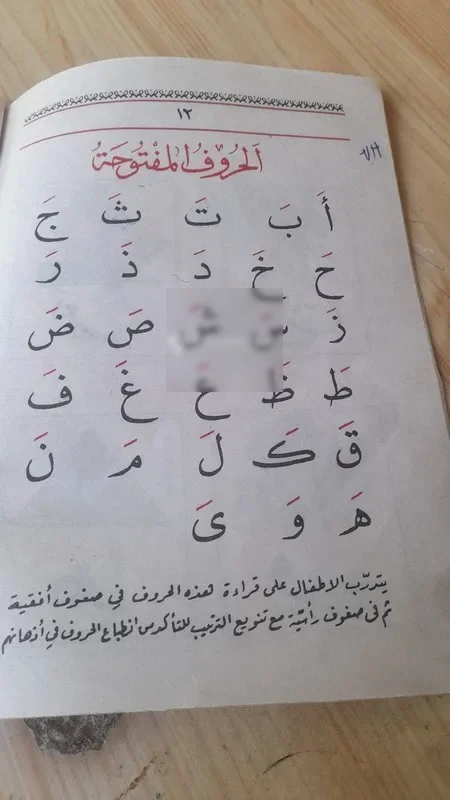 ١٢
اَلحُرُوْفُ المَفْتُوْحَةُ
أَ بَ تَ ثَ جَ
حَ خَ دَ ذَ رَ
زَ صَ ضَ
طَ ظَ غَ فَ
قَ كَ لَ مَ نَ
هَ وَ ىَ
يتدرّب الاطفال على قراءة هذه الحروف في صفوف أفقية
ثم في صفوف رأسيّة مع تنويع الترتيب للتأكد من انطباع الحروف في أذهانهم